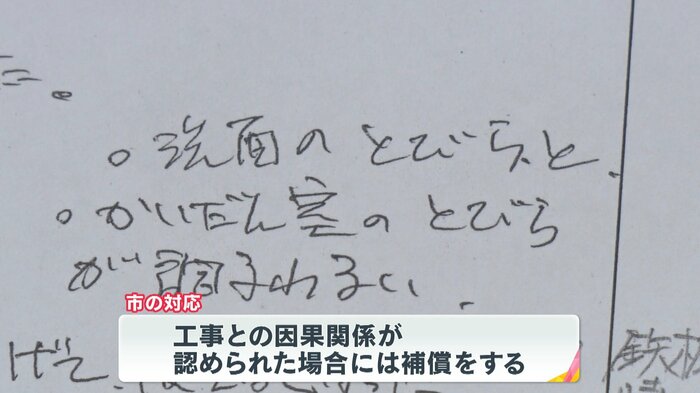 た。
。洗面のとびらと、
。かいだん室のとびら
が調子わるい、
市の対応
工事との因果関係が
認められた場合には補償をする
げて、
鉄板